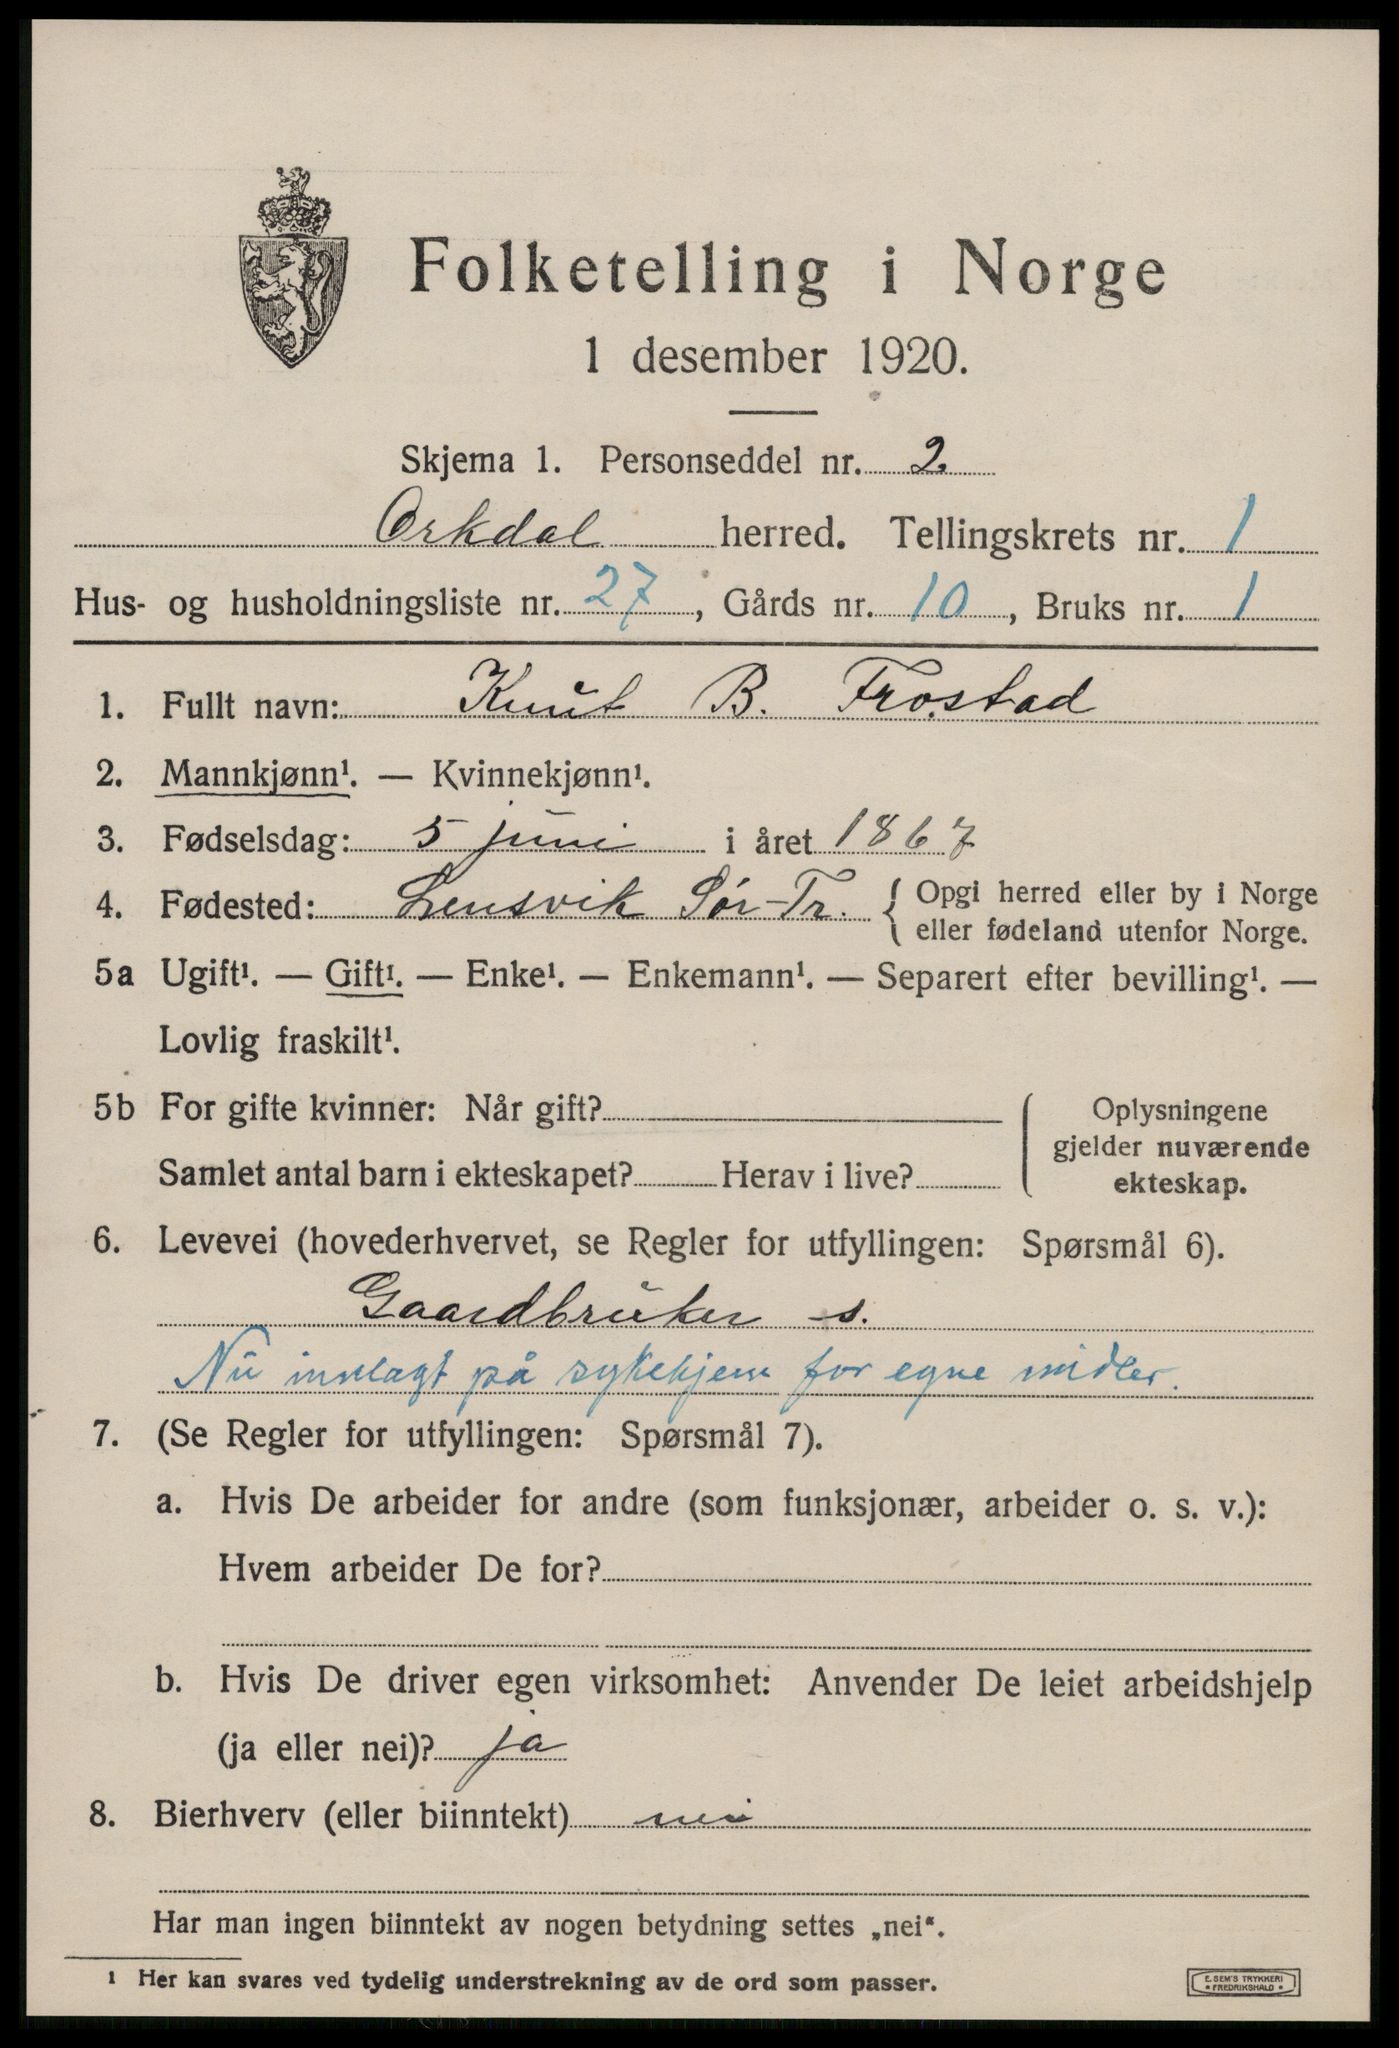 Folketelling i Norge
1 desember 1920.
Skjema 1. Personseddel nr. 2.
Orkdal herred. Tellingskrets nr. 1
Hus- og husholdningsliste nr. 27, Gårds nr. 10, Bruks nr. 1
1. Fullt navn: Knut B. Frostad
2. Mannkjønn¹. — Kvinnekjønn¹.
3. Fødselsdag: 5 juni i året 1867
4. Fødested: Lensvik Sór-Tr. { Opgi herred eller by i Norge
eller fødeland utenfor Norge.
5a Ugift¹. — Gift¹. — Enke¹. — Enkemann¹. — Separert efter bevilling¹. —
Lovlig fraskilt¹.
5b For gifte kvinner: Når gift?
Samlet antal barn i ekteskapet? Herav i live?
Oplysningene
gjelder nuværende
ekteskap.
6. Levevei (hovederhvervet, se Regler for utfyllingen: Spørsmål 6).
Gaardbruker s.
Nu innlagt på sykehjem for egne midler.
7. (Se Regler for utfyllingen: Spørsmål 7).
a. Hvis De arbeider for andre (som funksjonær, arbeider o. s. v.):
Hvem arbeider De for?
b. Hvis De driver egen virksomhet: Anvender De leiet arbeidshjelp
(ja eller nei)? ja
8. Bierhverv (eller biinntekt) nei
Har man ingen biinntekt av nogen betydning settes „nei“.
¹ Her kan svares ved tydelig understrekning av de ord som passer.
E. SEM'S TRYKKERI
* FREDRIKSHALD *